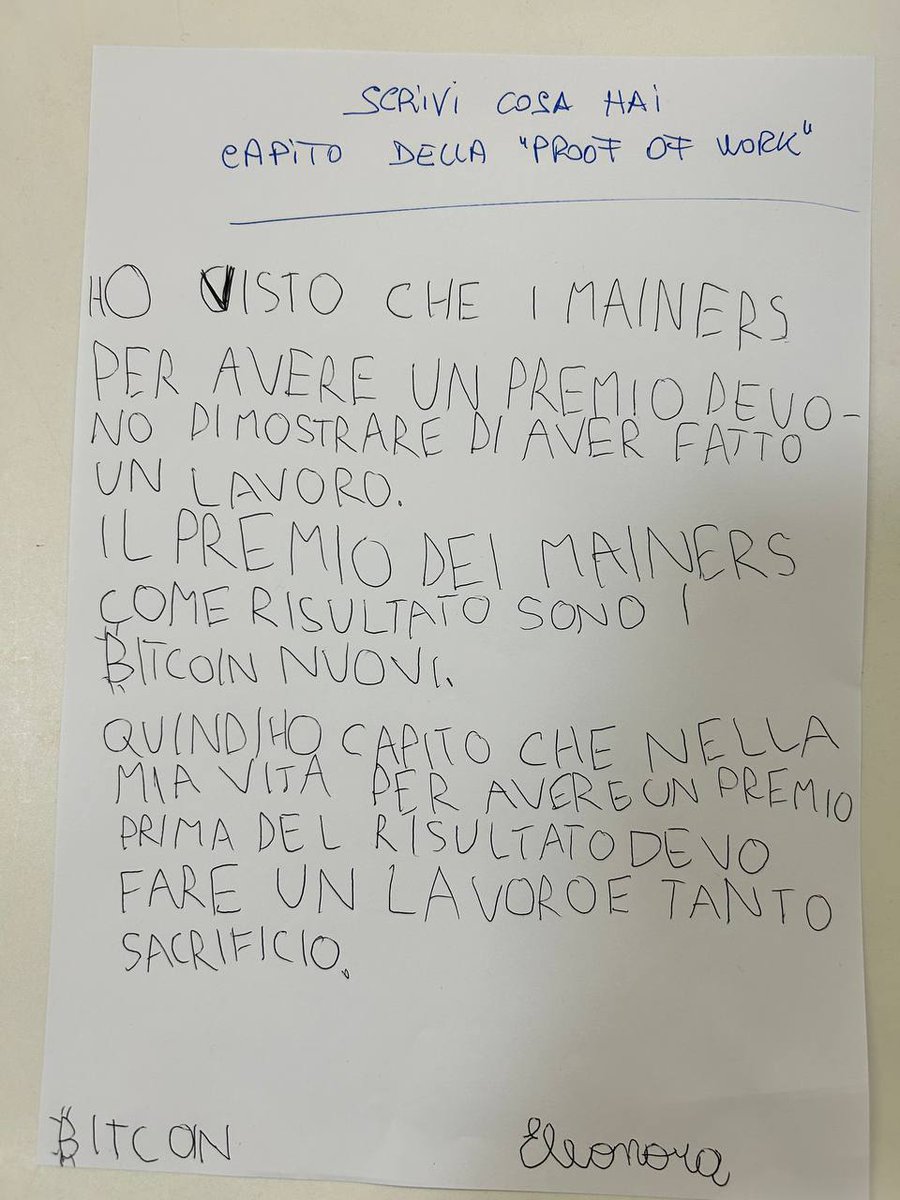 SCRIVI COSA HAI
CAPITO DELLA "PROOF OF WORK"
HO VISTO CHE I MAINERS
PER AVERE UN PREMIO DEVO-
NO DIMOSTRARE DI AVER FATTO
UN LAVORO.
IL PREMIO DEI MAINERS
COME RISULTATO SONO I
BITCOIN NUOVI.
QUINDI HO CAPITO CHE NELLA
MIA VITA PER AVERE UN PREMIO
PRIMA DEL RISULTATO DEVO
FARE UN LAVORO E TANTO
SACRIFICIO.
BITCOIN
Eleonora